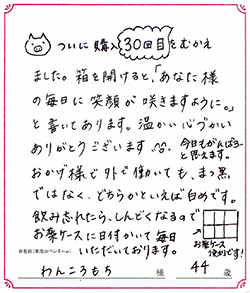 ついに購入30回目をむかえ
ました。箱を開けると、「あなた様
の毎日に笑顔が咲きますように。」
と書いてあります。温かい心づかい
ありがとうございます♡♡。
今日もがんばろー
と思えます。
おかげ様で外で働いても、まっ黒
ではなく、どちらかといえば白めです。
飲み忘れたら、しんどくなるので
お薬ケースに日付かいて毎日
いただいております。
お薬ケース
便利です!
お名前(本名かペンネーム)
わんころもち 様 44 歳